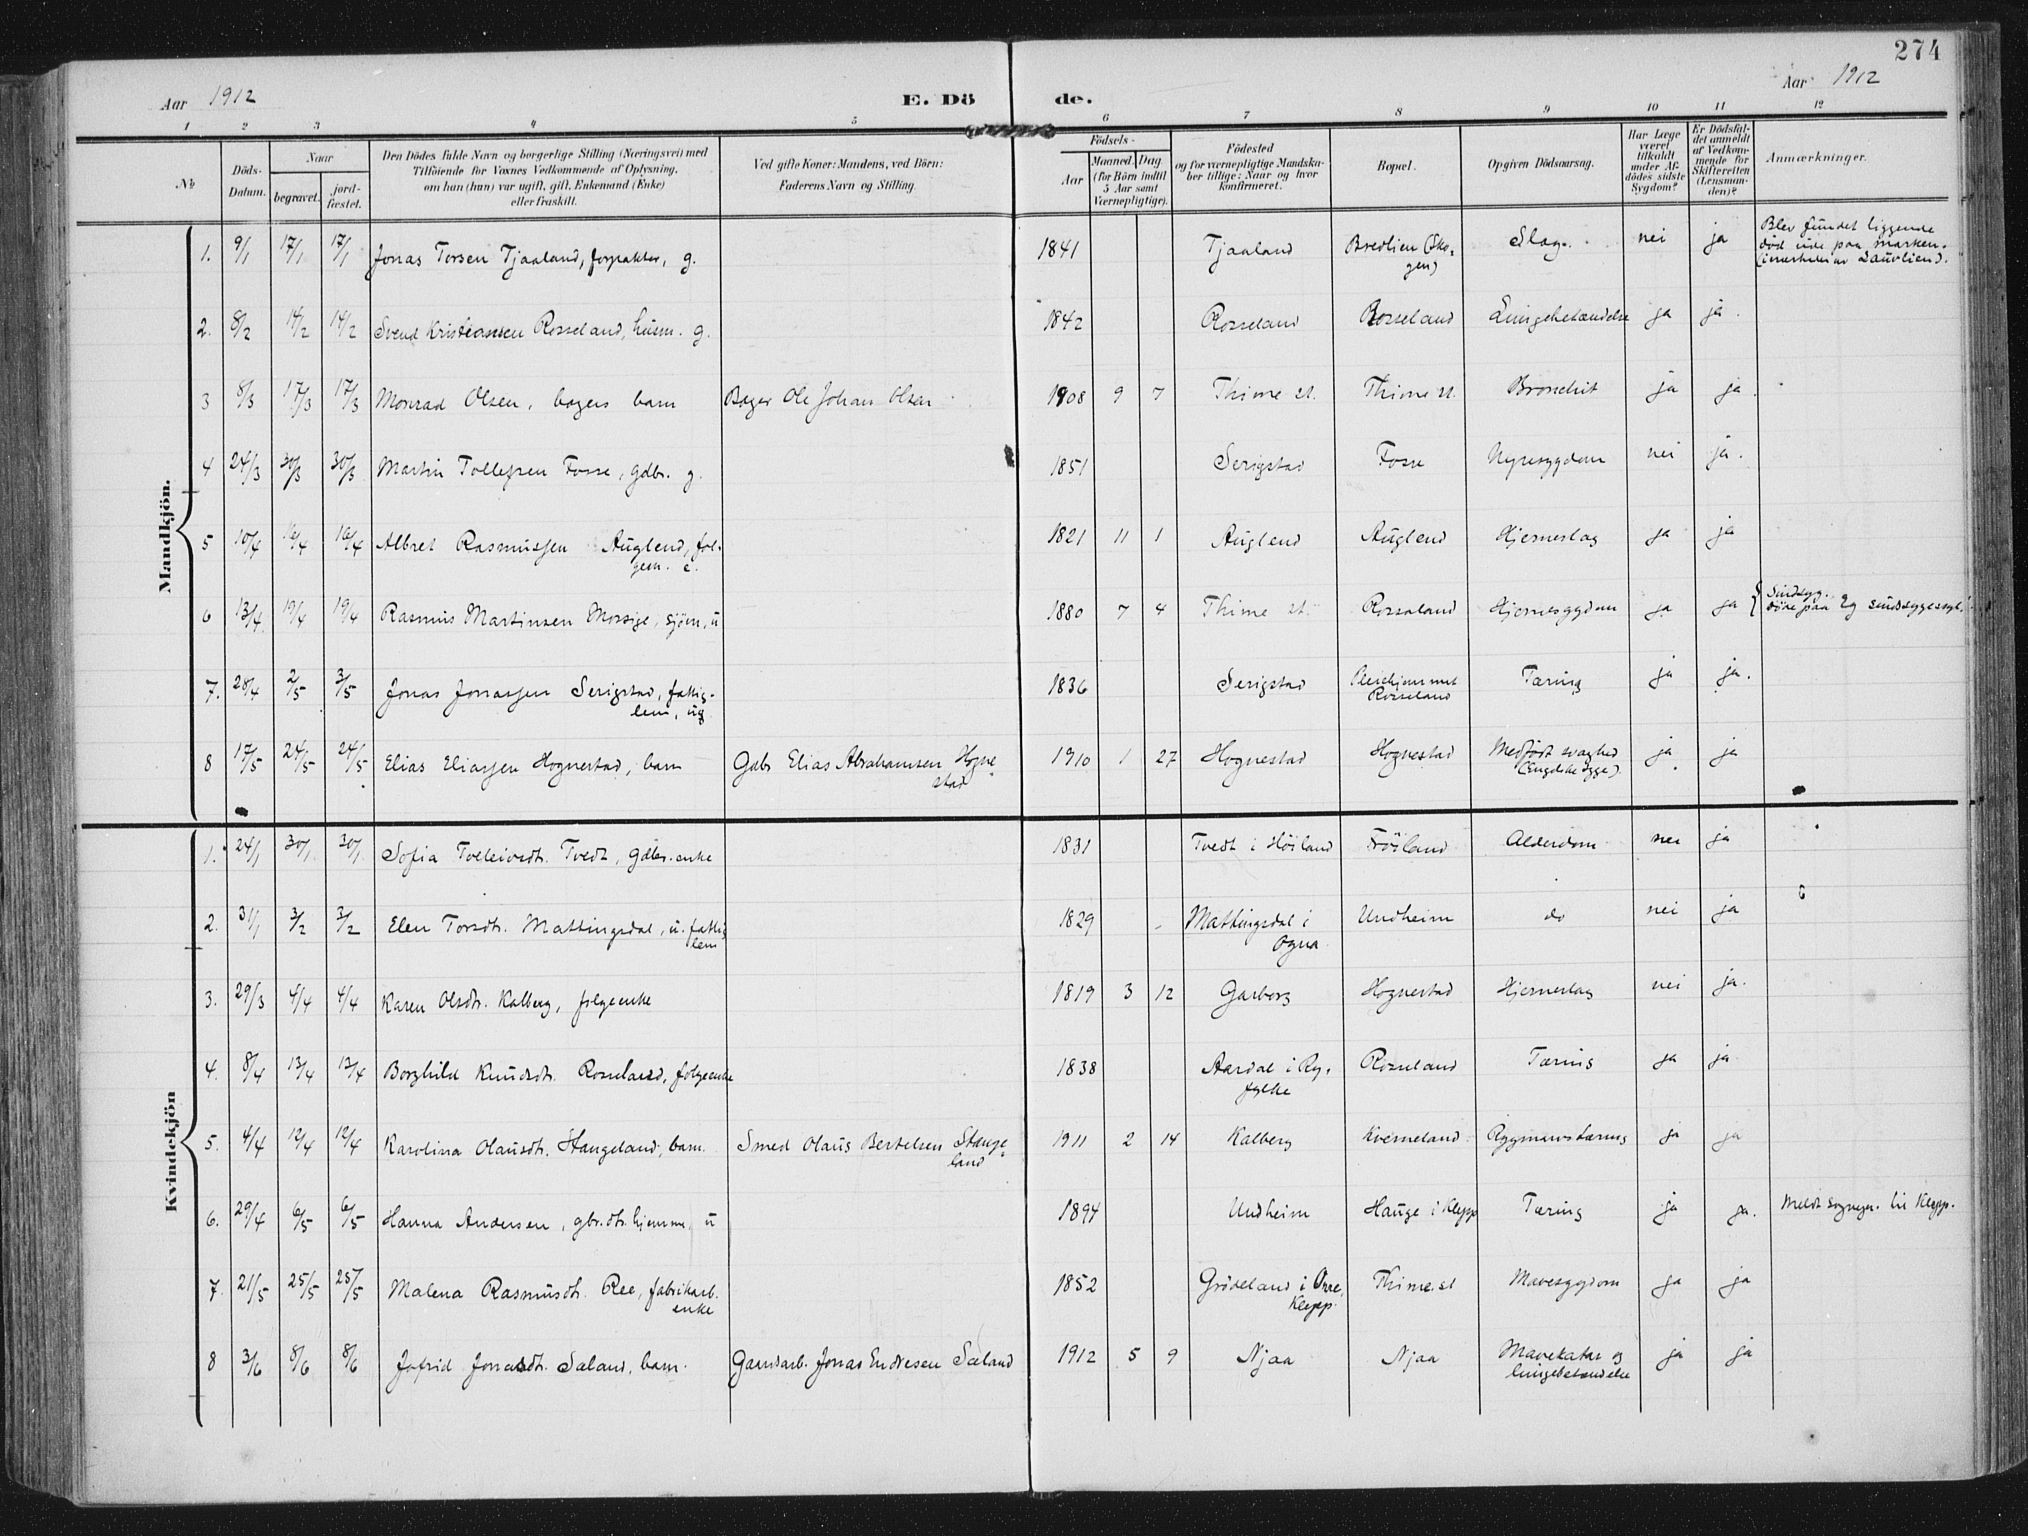 274
Aar 1912
E. Dö
de.
Aar 1912
1 2 3 4 5 6 7 8 9 10 11 12
№
Döds-
Datum.
Naar
begravet.
jord-
fæstet.
Den Dödes fulde Navn og borgerlige Stilling (Næringsvei) med
Tilföiende for Voxnes Vedkommende af Oplysning,
om han (hun) var ugift, gift, Enkemand (Enke)
eller fraskilt.
Ved gifte Koner: Mandens, ved Börn:
Faderens Navn og Stilling.
Födsels-
Aar
Maaned Dag
(for Börn indtil
5 Aar samt
Værnepligtige).
Födested
og for værnepligtige Mandska-
ber tillige: Naar og hvor
konfirmeret.
Bopæl.
Opgiven Dödsaarsag.
Har Læge
været
tilkaldt
under Af-
dödes sidste
Sygdom?
Er Dödsfal-
det anmeldt
af Vedkom-
mende for
Skifteretten
(Lensman-
den)?
Anmærkninger.
Mandkjön.
1. 9/1 17/1 17/1 Jonas Torsen Tjaaland, forpakter, g. 1841 Tjaaland Bredlien (Sko-
gen) Slag. nei ja Blev fundet liggende
död ude paa marken.
(i nærheden av Lauvlien).
2. 8/2 14/2 14/2 Svend Kristiansen Rosseland, husm. g. 1842 Rosseland Rosseland Lungebetændelse ja ja.
3 8/3 17/3 17/3 Monrad Olsen, bagers barn Bager Ole Johan Olsen 1908 9 7 Thime st. Thime st. Bronchit ja ja.
4 24/3 30/3 30/3 Martin Tollefsen Fosse, gdbr. g. 1851 Serigstad Fosse Nyresygdom nei ja.
5 10/4 16/4 16/4 Albret Rasmussen Auglend, fol-
gem. e. 1821 11 1 Auglend Auglend Hjerneslag ja ja
6 13/4 19/4 19/4 Rasmus Martinsen Mossige, sjöm, u 1880 7 4 Thime st. Rosseland Hjernesygdom ja ja Sindsyg.
Döde paa Eg sindssygeasyl.
7. 28/4 2/5 3/5 Jonas Jonassen Serigstad, fattig-
lem, ug. 1836 Serigstad Pleiehjemmet
Rosseland Tæring ja ja.
8 17/5 24/5 24/5 Elias Eliassen Hognestad, barn Gdbr Elias Abrahamsen Hogne-
stad 1910 1 27 Hognestad Hognestad Medfödt svaghed
(Engelsk syge) ja ja
Kvindekjön
1. 24/1 30/1 30/1 Sofia Tolleivsdtr. Tvedt, gdbr.enke 1831 Tvedt i Höiland Fröiland Alderdom nei ja
2. 31/1 3/2 3/2 Elen Torsdtr. Mattingsdal, u. fattig-
lem 1829 Mattingsdal i
Ogna. Undheim do nei ja
3. 29/3 4/4 4/4 Karen Olsdtr. Kalberg, folgeenke 1819 3 12 Garborg Hognestad Hjerneslag nei ja.
4. 8/4 13/4 13/4 Borghild Knudsdtr. Rosseland, folgeenke 1838 Aardal i Ry-
fylke Rosseland Tæring ja ja
5. 4/4 12/4 12/4 Karolina Olausdtr. Stangeland, barn. Smed Olaus Bertelsen Stange-
land 1911 2 14 Kalberg Kverneland Rygmarvstæring ja ja
6. 29/4 6/5 6/5 Hanna Andersen, gbr.dtr. hjemme, u 1894 Undheim Hauge i Klepp Tæring ja ja. Meldt sogneprr. til Klepp.
7. 21/5 25/5 25/5 Malena Rasmusdtr. Ree, fabrikarb.
enke 1852 Grödeland i Orre,
Klepp. Thime.st Mavesygdom ja ja
8 3/6 8/6 8/6 Jofrid Jonasdtr. Sæland, barn. Gaardsarb. Jonas Endresen Sæland 1912 5 9 Njaa Njaa Mavekatar og
lungebetændelse ja ja